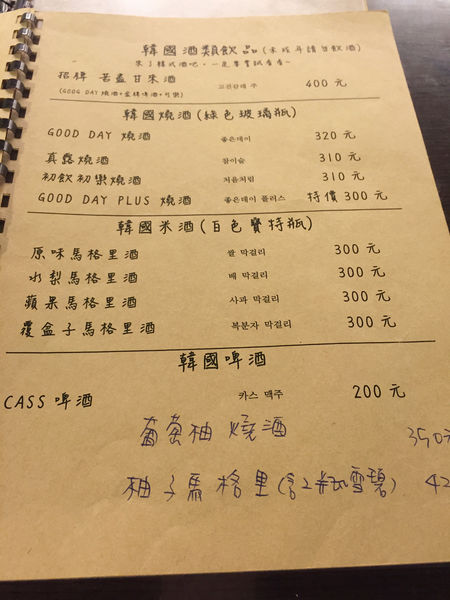 韓國酒類飲品(未成年請勿飲酒)
來了韓式酒吧,一定要嘗試看看~
招牌 苦盡甘來酒 고진감래 주 400 元
(GOOD DAY 燒酒+金牌啤酒+可樂)
韓國燒酒(綠色玻璃瓶)
GOOD DAY 燒酒 좋은데이 320 元
真露燒酒 참이슬 310 元
初飲初樂燒酒 처음처럼 310 元
GOOD DAY PLUS 燒酒 좋은데이 플러스 特價 300 元
韓國米酒(白色寶特瓶)
原味馬格里酒 쌀 막걸리 300 元
水梨馬格里酒 배 막걸리 300 元
蘋果馬格里酒 사과 막걸리 300 元
覆盆子馬格里酒 복분자 막걸리 300 元
韓國啤酒
CASS 啤酒 카스 맥주 200 元
葡萄柚 燒酒 350元
柚子馬格里(含2瓶雪碧) 42